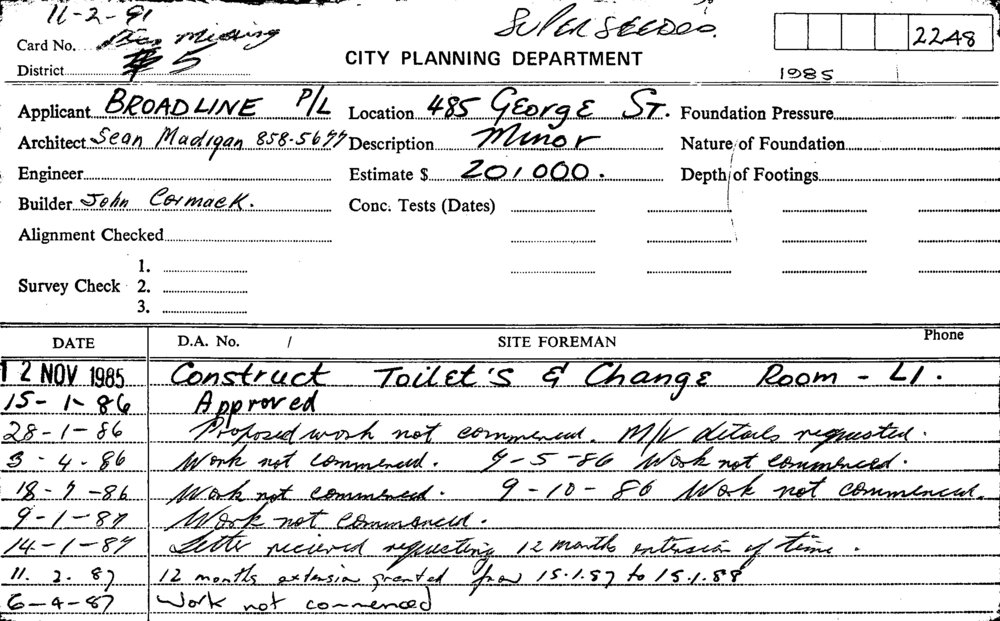 11-2-91 SUPERSEEDED.
Card No. Missing 2248
CITY PLANNING DEPARTMENT
District # 5 1985
Applicant BROADLINE P/L Location 485 George St. Foundation Pressure
Architect Sean Madigan 858-5677 Description Minor Nature of Foundation
Engineer Estimate $ 201000. Depth of Footings
Builder John Cormack. Conc. Tests (Dates)
Alignment Checked
1.
Survey Check 2.
3.
DATE D.A. No. / SITE FOREMAN Phone
12 NOV 1985 Construct Toilet's & Change Room - L1.
15-1-86 Approved
28-1-86 Proposed work not commenced. M/V details requested.
3-4-86 Work not commenced. 9-5-86 Work not commenced.
18-7-86 Work not commenced. 9-10-86 Work not commenced.
9-1-87 Work not commenced.
14-1-87 Letter recieved requesting 12 months extension of time.
11.2.87 12 months extension granted from 15.1.87 to 15.1.88
6-4-87 Work not commenced